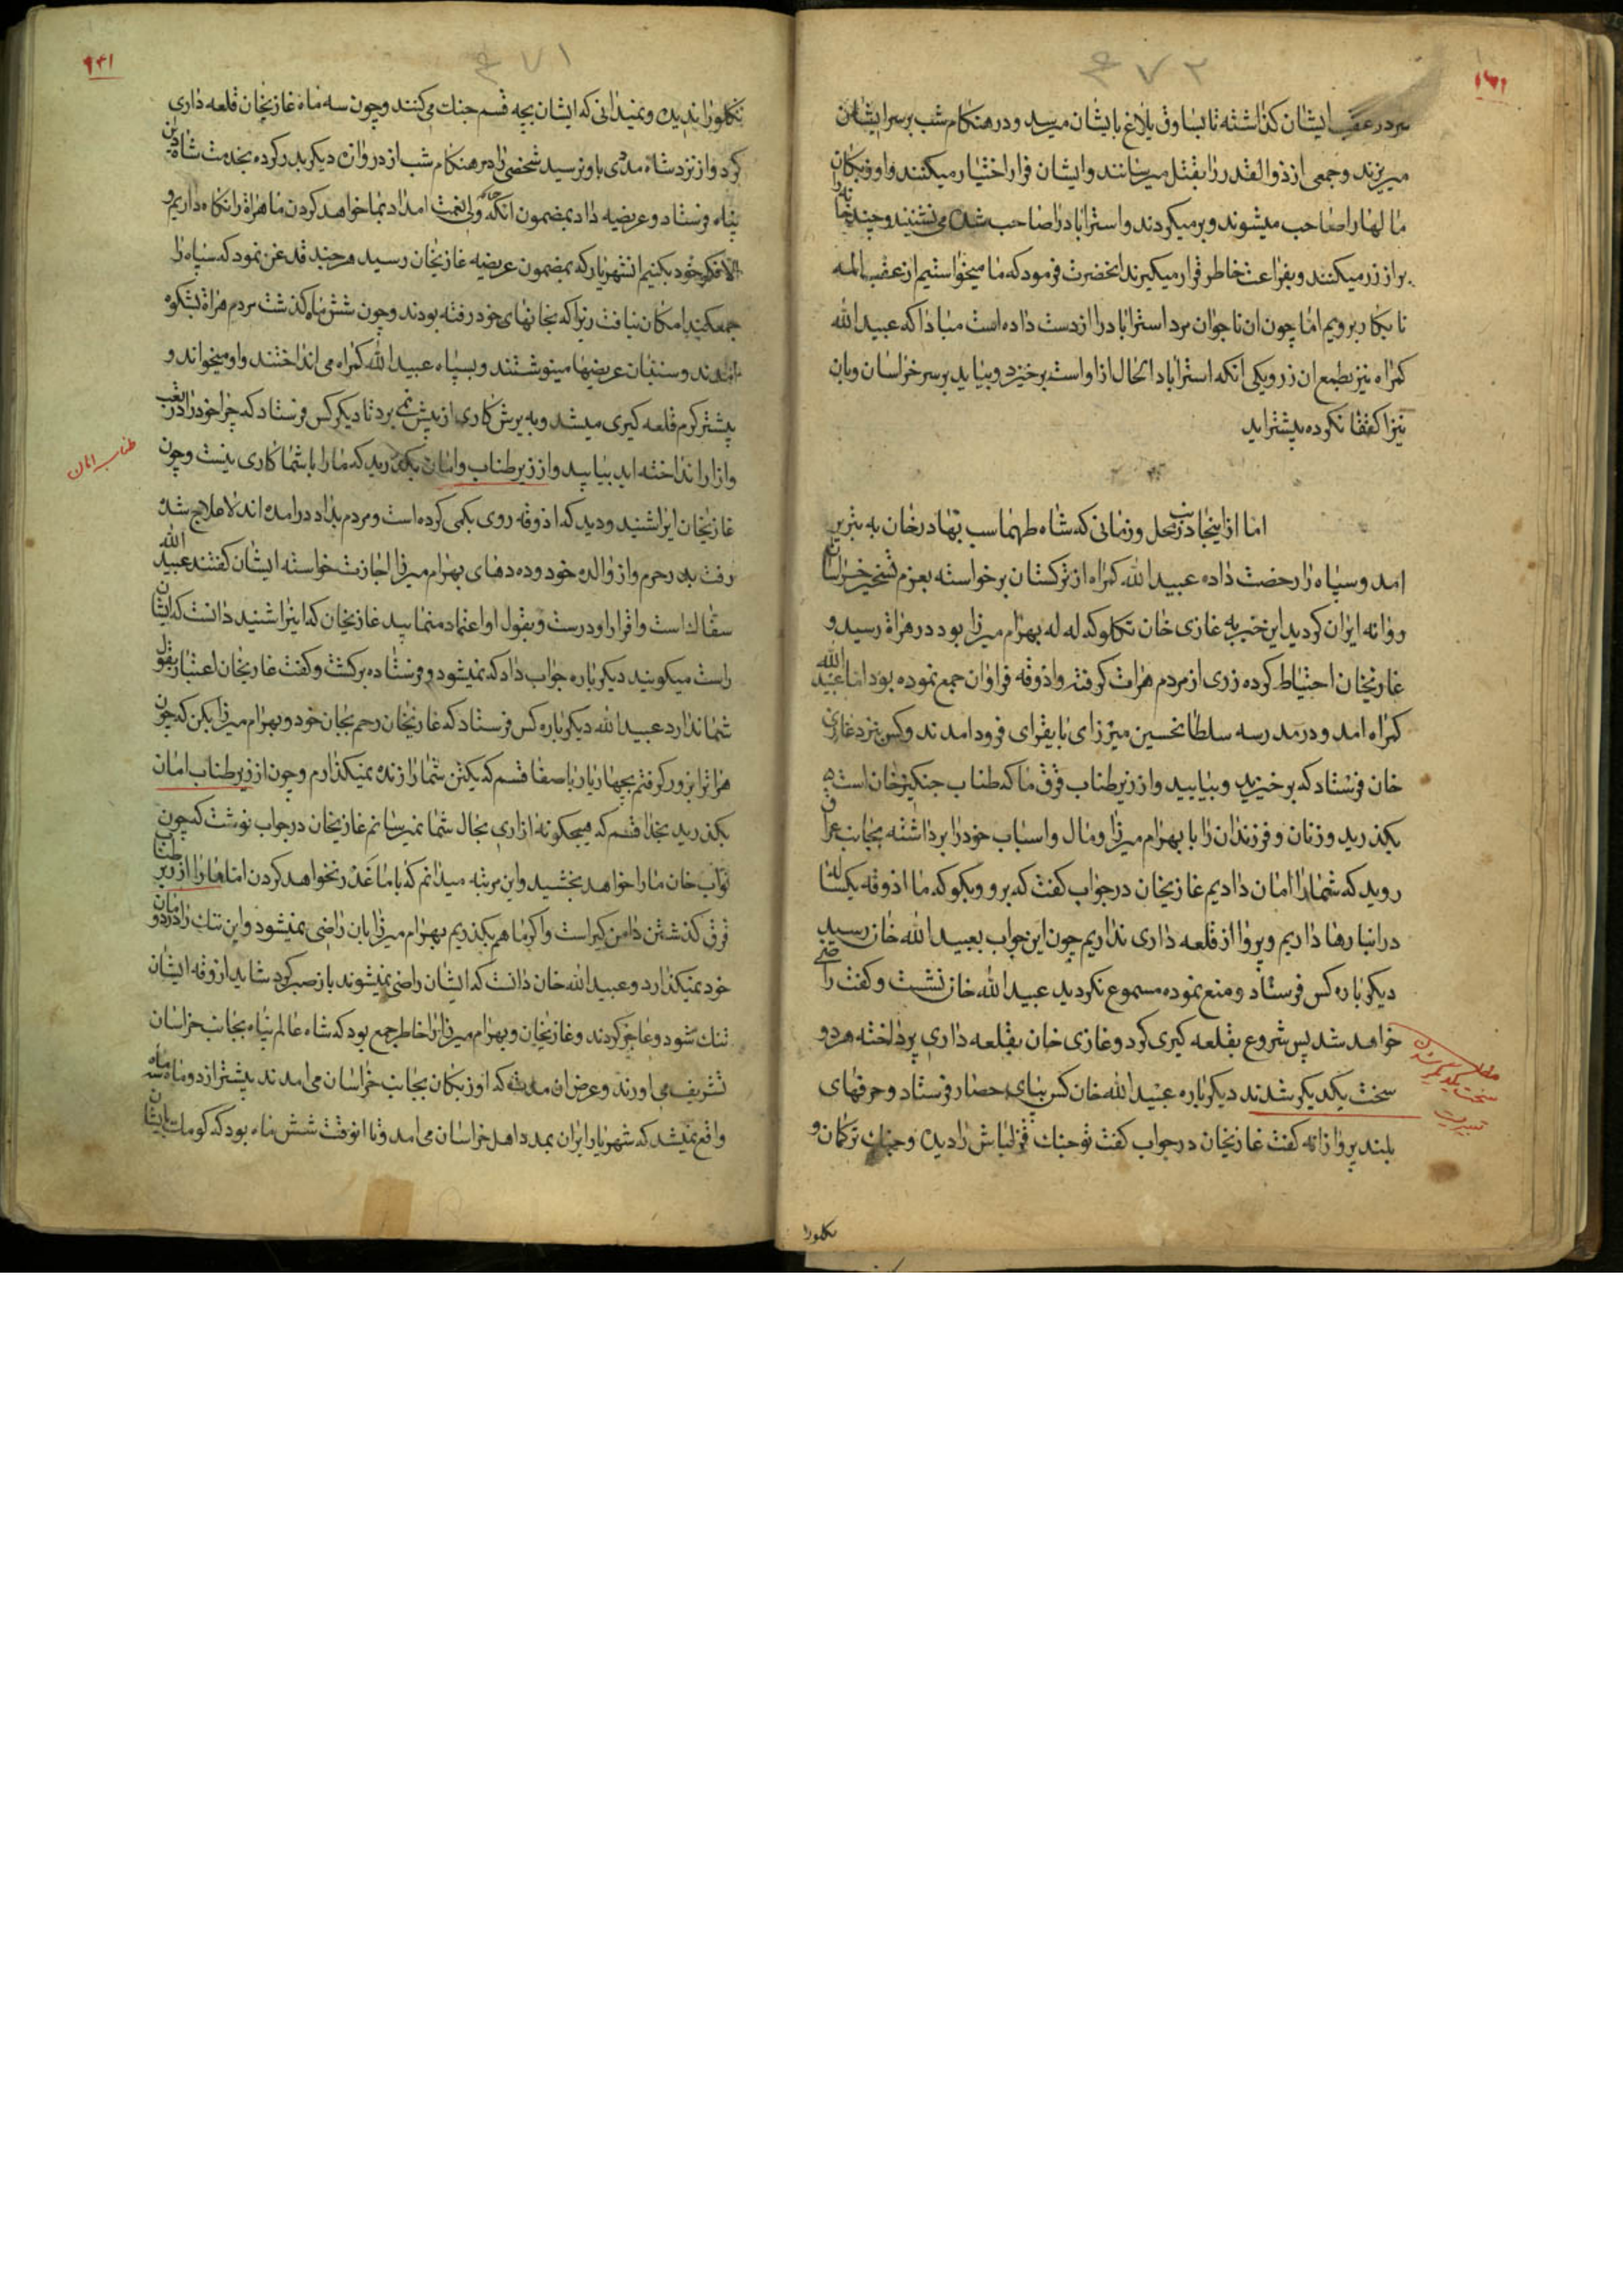 ۴۷۲
۱۶۱
سر در عقب ایشان کذاشته تا بساوق بلاغ بایشان میرسد و در هنکام شب بر سر ایشان
میریزند و جمعی از ذوالقدر را بقتل میرسانند و ایشان فرار اختیار میکنند و اوزبکان
مالها را صاحب میشوند و برمیکردند و استراباد را صاحب شده می نشینند و چند خانه را
پر از زر میکنند و بفراغت خاطر قرار میکیرند انحضرت فرمود که ما میخواستیم از عقب المه
تا بکار برویم اما چون ان ناجوان مرد استراباد را از دست داده است مبادا که عبید الله
کمراه نیز بطمع ان زر ویکی انکه استراباد الحال از او است برخیزد و بیاید بر سر خراسان و بان
نیز اکتفا نکرده پیشتر اید
اما از اینجانب در محل و زمانی که شاه طهماسب بهادرخان به تبریز
امد و سپاه را رخصت داده عبید الله کمراه از ترکستان برخواسته بعزم تسخیر خراسان
روانه ایران کردید این خبر به غازی خان تکلو که له له بهرام میرزا بود در هراة رسید و
غازیخان احتیاط کرده زری از مردم هرات کرفته و اذوقه فراوان جمع نموده بود اما عبید الله
کمراه امد و در مدرسه سلطانحسین میرزای بایقرای فرود امدند و کس بنزد غازی
خان فرستاد که برخیزید و بیایید و از زیر طناب قرق ما که طناب جنکیزخان است
بکذرید و زنان و فرزندان را با بهرام میرزا و مال و اسباب خود را برداشته بجانب عراق
روید که شما را امان دادیم غازیخان در جواب کفت که برو و بکو که ما اذوقه یکساله
در انبارها داریم و پروا از قلعه داری نداریم چون این جواب بعبید الله خان رسید
دیکر باره کس فرستاد و منع نموده مسموع نکردید عبید الله خان نشست و کفت راضی
خواهد شد پس شروع بقلعه کیری کرد و غازی خان بقلعه داری پرداخته هر دو
سخت یکدیکر شدند دیکر باره عبید الله خان کس بپای حصار فرستاد و حرفهای
بلند پروازانه کفت غازیخان در جواب کفت تو جنک قزلباش را دیده و جنک ترکمان و
سخت یکدیگر شدن
تکلو را
۴۷۱
تکلو را ندیده و نمیدانی که ایشان بچه قسم جنک می کنند و چون سه ماه غازیخان قلعه داری
کرد و از نزد شاه مددی باو نرسید شخصی را در هنکام شب از دروازه دیکر بدر کرده بخدمت شاه دین
پناه فرستاد و عریضه داد بمضمون انکه ولی نعمت امداد بما خواهد کردن ما هراة را نکاه داریم و
الا فکر خود بکنیم انشهریار که بمضمون عریضه غازیخان رسید هر چند قدغن نمود که سپاه را
جمع کنید امکان نیافت زیرا که بخانهای خود رفته بودند و چون شش ماه کذشت مردم هراة بشکوه
امدند و سنیان عریضها مینوشتند و بسپاه عبید الله کمراه می انداختند و او میخواند و
پیشتر کرم قلعه کیری میشد و به یرش کاری از پیش نمی برد تا دیکر کس فرستاد که چرا خود را در تعب
و ازار انداخته اید بیایید و از زیر طناب و امان بکذرید که ما را با شما کاری نیست و چون
طناب امان
غازیخان این را شنید و دید که اذوقه روی بکمی کرده است و مردم بداد درامده اند لا علاج شده
رفت بدر حرم و از والده خود و ده دهای بهرام میرزا اجازت خواسته ایشان کفتند عبید الله
سقا لذ است و اقرار او درست و بقول او اعتماد منمایید غازیخان که اینرا شنید دانست که ایشان
راست میکویند دیکر باره جواب داد که نمیشود و فرستاده برکشت و کفت غازیخان اعتبار بقول
شما ندارد عبید الله دیکر باره کس فرستاد که غازیخان رحم بجان خود و بهرام میرزا بکن که چون
هراترا بزور کرفتم بچهار یار با صفا قسم که یکتن شما را زنده نمیکذارم و چون از زیر طناب امان
بکذرید بخدا قسم که هیچکونه ازاری بحال شما نمیرسانم غازیخان در جواب نوشت که چون
نواب خان ما را خواهد بخشید و این مرتبه میدانم که با ما غدر نخواهد کردن اما ما را از زیر طناب
قرق کذشتن دامن کیر است و اکر ما هم بکذریم بهرام میرزا بان راضی نمیشود و این ننک را در دودمان
خود نمیکذارد و عبید الله خان دانست که ایشان راضی نمیشوند باز صبر کرد شاید ازوقه ایشان
تنک شود و عاجز کردند و غازیخان و بهرام میرزا را خاطر جمع بود که شاه عالم پناه بجانب خراسان
تشریف می اورند و عرض ان مدت که اوزبکان بجانب خراسان می امدند پیشتر از دو ماه سه ماه
واقع نمیشد که شهریار ایران بمدد اهل خراسان می امد و تا انوقت شش ماه بود که کومک بایشان